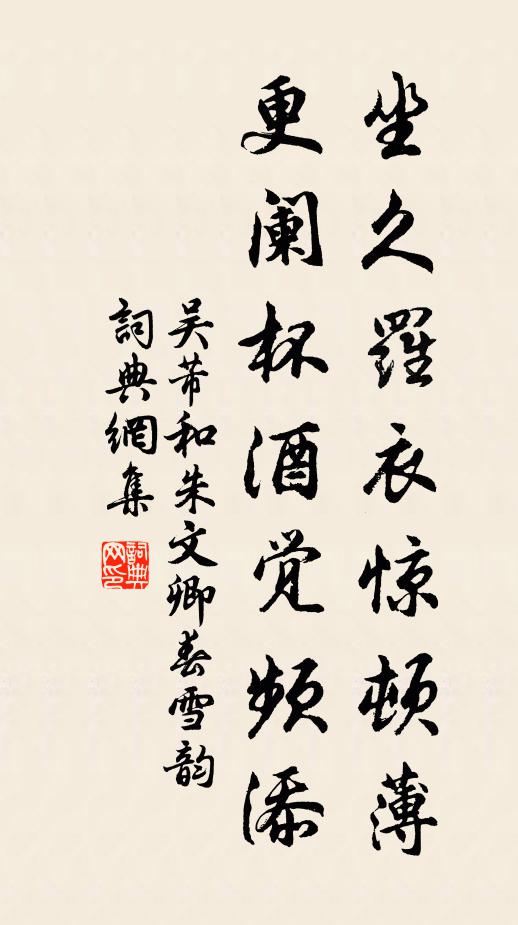 坐久羅衣惊頓薄
更阑杯酒觉頻添
吴芾和朱文卿春雪韵
詞典網集
詞典网印